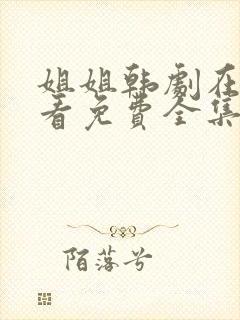 姐姐韩劇在
看免費全集
陌落兮